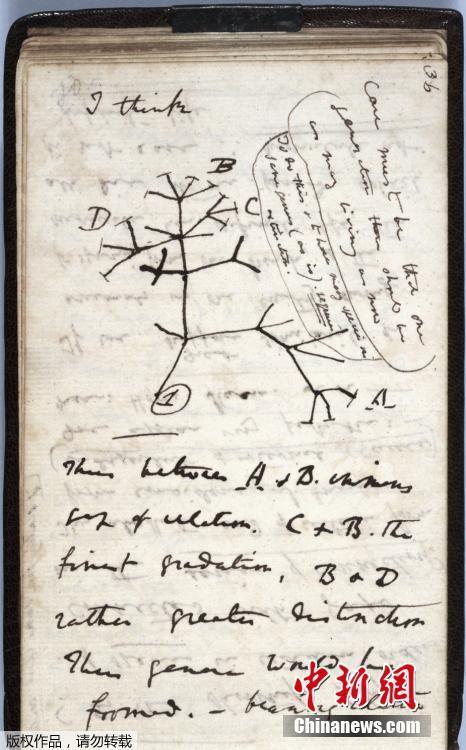 36
I think
Case must be that one
generation then should be
as many living as now
To do this & to have many species in
same genus (as is) requires
extinction.
B
D
C
A
1
Thus between A & B. immens
gap of relation. C & B. the
finest gradation, B & D
rather greater distinction
Thus genera would be
formed. — bearing relation
中新网
Chinanews.com
版权作品，请勿转载